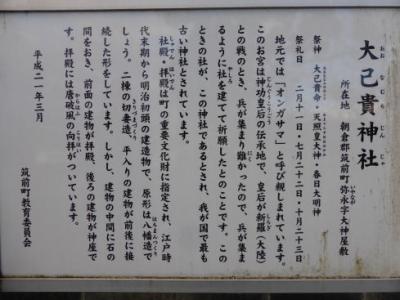 大己貴神社
おおなむちじんじゃ
所在地 朝倉郡筑前町弥永字大神屋敷
いやなが
祭神 大己貴命・天照皇大神・春日大明神
祭礼日 二月十一日・七月二十二日・十月二十三日
地元では「オンガサマ」と呼び親しまれています。
このお宮は神功皇后の伝承地で、皇后が新羅(大陸)
との戦のとき、兵が集まり難かったので、兵が集ま
るように社を建てて祈願したとのことです。この
ときの社が、この神社であるとされ、我が国で最も
古い神社とされています。
社殿・拝殿は町の重要文化財に指定され、江戸時
代末期から明治初頭の建造物で、原形は八幡造で
しょう。二棟の切妻造、平入りの建物が前後に接
続した形をしています。しかし、建物の中間に石の
間をおき、前面の建物が拝殿、後ろの建物が神座で
す。拝殿には唐破風の向拝がついています。
平成二一年三月
筑前町教育委員会